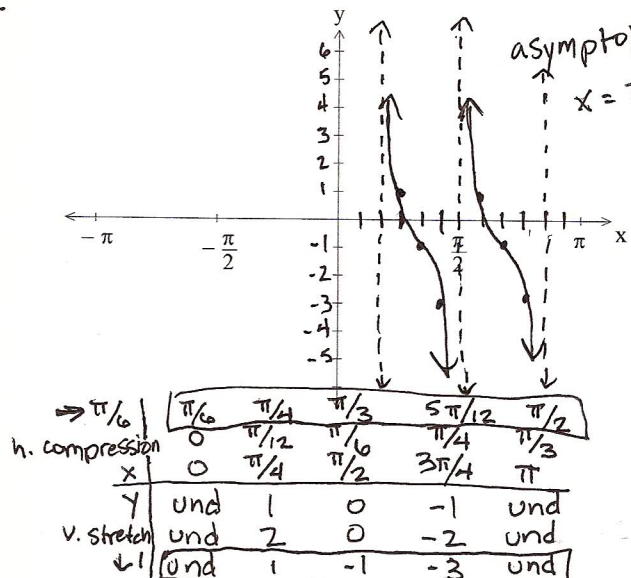 y
asympto
x =
6
5
4
3
2
1
-π -π/2 π/2 π x
-1
-2
-3
-4
-5
→ π/6 | π/6 π/4 π/3 5π/12 π/2
h. compression 0 π/12 π/6 π/4 π/3
x 0 π/4 π/2 3π/4 π
y und 1 0 -1 und
v. stretch und 2 0 -2 und
↓1 und 1 -1 -3 und